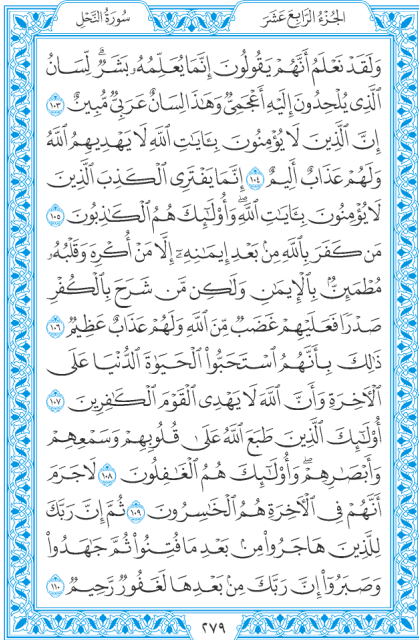 الجزء الرابع عشر
سورة النحل
وَلَقَدْ نَعْلَمُ أَنَّهُمْ يَقُولُونَ إِنَّمَا يُعَلِّمُهُۥ بَشَرٌۗ لِّسَانُ
ٱلَّذِى يُلْحِدُونَ إِلَيْهِ أَعْجَمِىٌّ وَهَٰذَا لِسَانٌ عَرَبِىٌّ مُّبِينٌ ١٠٣
إِنَّ ٱلَّذِينَ لَا يُؤْمِنُونَ بِـَٔايَٰتِ ٱللَّهِ لَا يَهْدِيهِمُ ٱللَّهُ
وَلَهُمْ عَذَابٌ أَلِيمٌ ١٠٤ إِنَّمَا يَفْتَرِى ٱلْكَذِبَ ٱلَّذِينَ
لَا يُؤْمِنُونَ بِـَٔايَٰتِ ٱللَّهِۖ وَأُو۟لَٰٓئِكَ هُمُ ٱلْكَٰذِبُونَ ١٠٥
مَن كَفَرَ بِٱللَّهِ مِنۢ بَعْدِ إِيمَٰنِهِۦٓ إِلَّا مَنْ أُكْرِهَ وَقَلْبُهُۥ
مُطْمَئِنٌّۢ بِٱلْإِيمَٰنِ وَلَٰكِن مَّن شَرَحَ بِٱلْكُفْرِ
صَدْرًا فَعَلَيْهِمْ غَضَبٌ مِّنَ ٱللَّهِ وَلَهُمْ عَذَابٌ عَظِيمٌ ١٠٦
ذَٰلِكَ بِأَنَّهُمُ ٱسْتَحَبُّوا۟ ٱلْحَيَوٰةَ ٱلدُّنْيَا عَلَى
ٱلْـَٔاخِرَةِ وَأَنَّ ٱللَّهَ لَا يَهْدِى ٱلْقَوْمَ ٱلْكَٰفِرِينَ ١٠٧
أُو۟لَٰٓئِكَ ٱلَّذِينَ طَبَعَ ٱللَّهُ عَلَىٰ قُلُوبِهِمْ وَسَمْعِهِمْ
وَأَبْصَٰرِهِمْۖ وَأُو۟لَٰٓئِكَ هُمُ ٱلْغَٰفِلُونَ ١٠٨ لَا جَرَمَ
أَنَّهُمْ فِى ٱلْـَٔاخِرَةِ هُمُ ٱلْخَٰسِرُونَ ١٠٩ ثُمَّ إِنَّ رَبَّكَ
لِلَّذِينَ هَاجَرُوا۟ مِنۢ بَعْدِ مَا فُتِنُوا۟ ثُمَّ جَٰهَدُوا۟
وَصَبَرُوٓا۟ إِنَّ رَبَّكَ مِنۢ بَعْدِهَا لَغَفُورٌ رَّحِيمٌ ١١٠
٢٧٩